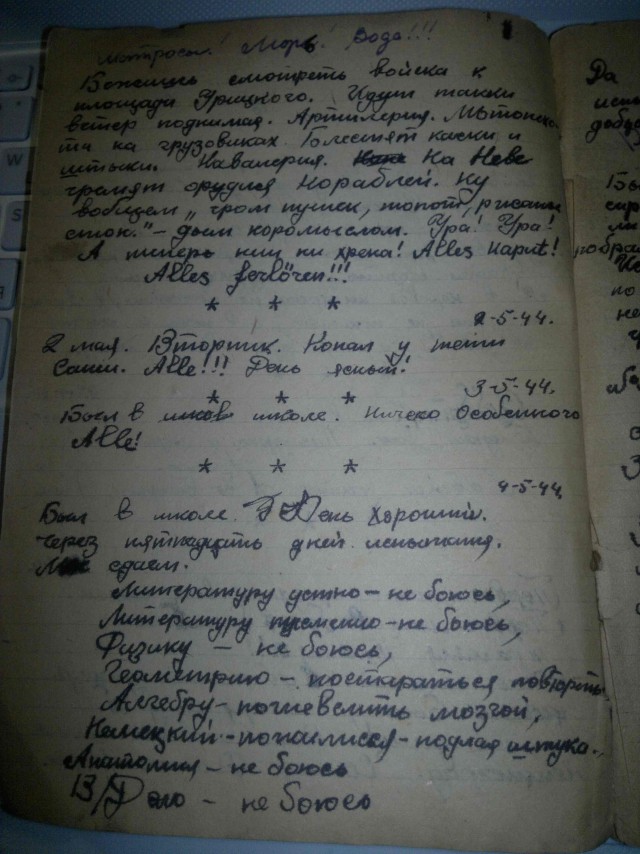 матросы! Море! Вода!!!
Бежишь смотреть войска к
площади Урицкого. Идут танки
ветер поднимая. Артилерия. Мотопехо-
та на грузовиках. Блестят каски и
штыки. Кавалерия. На Неве
гремят орудия кораблей. Ну
вобщем „гром пушек, топот, ржанье
стон." – дым коромыслом. Ура! Ура!
А теперь ни хрена! Alles kaput!
Alles ferlören!!!
* * *
2-5-44.
2 мая. Вторник. Копал у тёти
Саши. Alle!!! День ясный!
3-5-44.
* * *
Был в школе. Ничего особенного
Alle!
* * *
4-5-44.
Был в школе. День хороший.
Через пятнадцать дней испытания.
сдаем.
Литературу устно – не боюсь,
Литературу письменно – не боюсь,
Физику – не боюсь,
Геометрию – постараться повторить
Алгебру – пошевелить мозгой,
Немецкий – – подлая штука.
Анатомия – не боюсь
В/Дело – не боюсь
Да